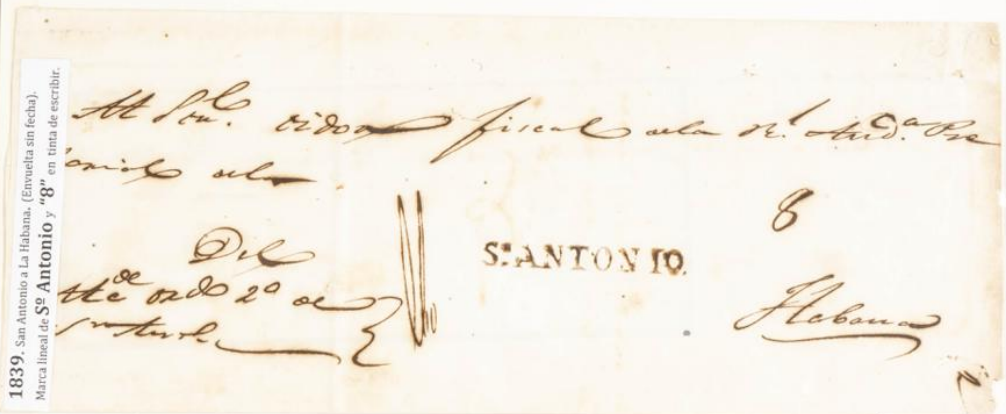 1839. San Antonio a La Habana. (Envuelta sin fecha).
Marca lineal de Sº Antonio y “8” en tinta de escribir.
Al Sor. oidor fiscal de la Rl. Audª. Pre
torial de la
Del
Alcde ordo 2º de
Sn Anto
Sn. ANTONIO.
8
Habana